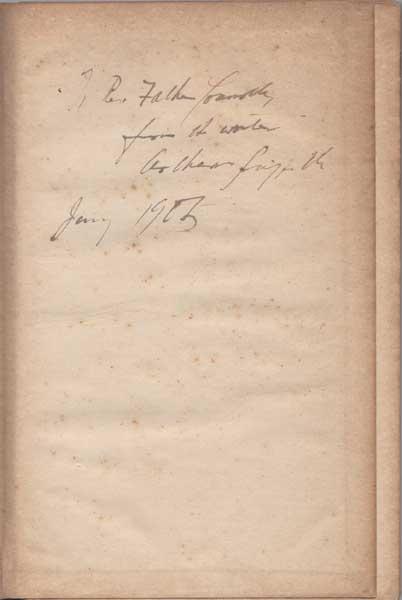 To Rev. Father Connolly,
from the writer
Arthur Griffith
Jany 1905